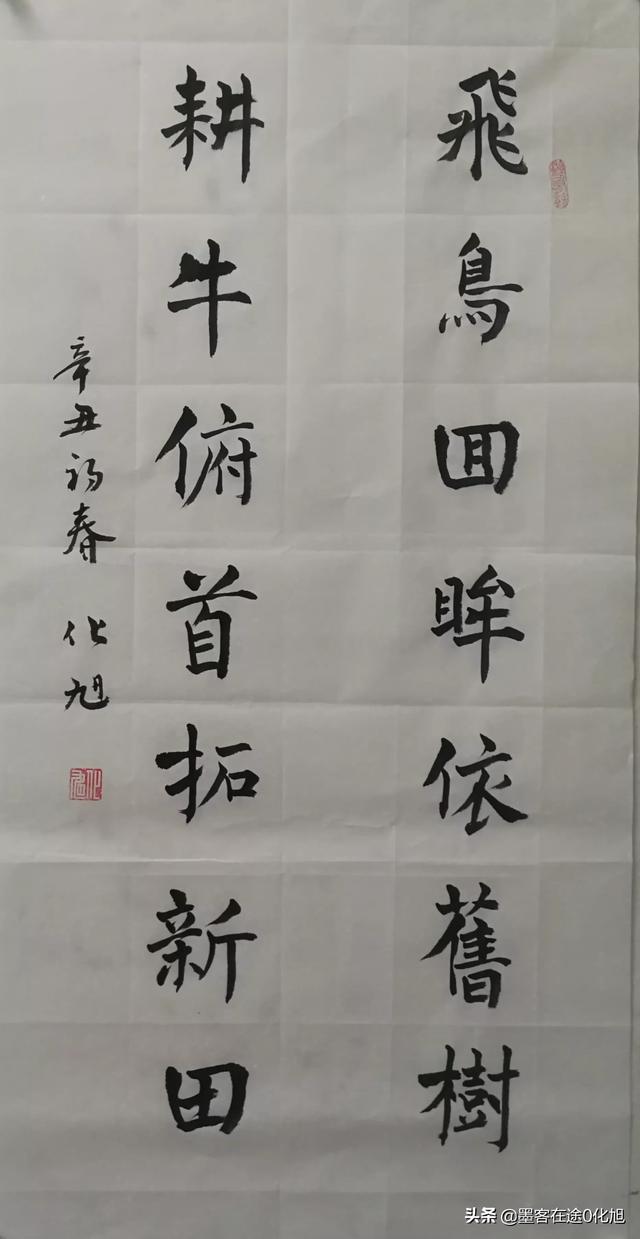 飛鳥囬眸依舊樹
耕牛俯首拓新田
辛丑初春 化旭
头条 @墨客在途0化旭